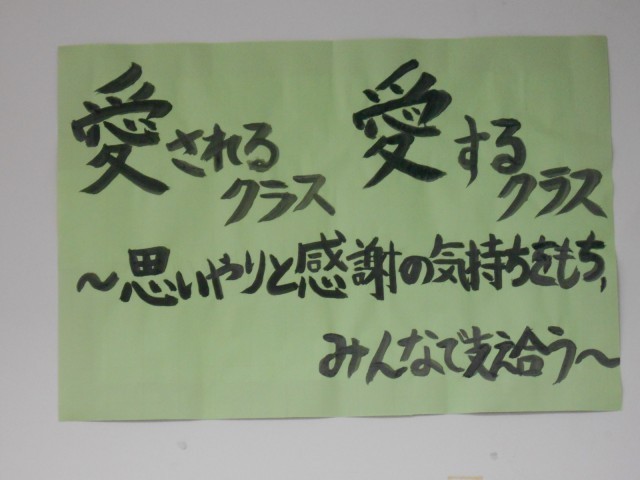 愛されるクラス 愛するクラス
～思いやりと感謝の気持ちをもち,
みんなで支え合う～